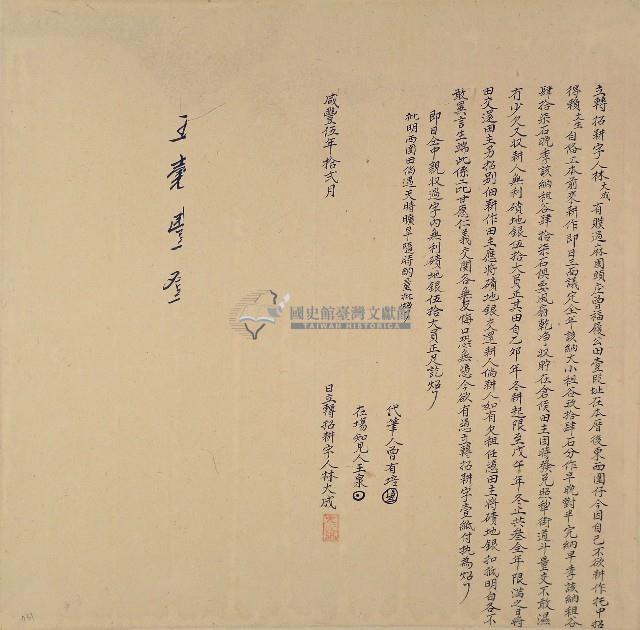 立轉招耕字人林大成有贌過麻園頭庄曾福履公田壹叚址在本厝後東西圍仔今因自己不欲耕作托中招
得賴 自俻工本前來耕作即日三面議定全年該納大小租谷玖拾肆石分作早晚對半完納早季該納租谷
肆拾柒石晚季該納租谷肆拾柒石俱要風扇乾净收貯在倉候田主困將發兌照犂街道斗量交不敢濕
有少欠又收耕人無利磧地銀伍拾大員正其田自己卯年冬耕起限至戊午年冬止共叁全年限滿之日將
田交還田主另招别佃耕作田主應將磧地銀交還耕人倘耕人如有欠租任憑田主將磧地銀扣抵明白各不
敢異言生端此係二比甘愿仁義交關各無反悔口恐無憑今欲有憑立轉招耕字壹紙付执為炤
即日仝中親收過字內無利磧地銀伍拾大員正足訖炤
批明西圍田倘遇天時曠旱隨時酌量批炤
代筆人曾有培
在場知見人王泉
日立轉招耕字人林大成
咸豐伍年拾弍月
國史館臺灣文獻館
TAIWAN HISTORICA